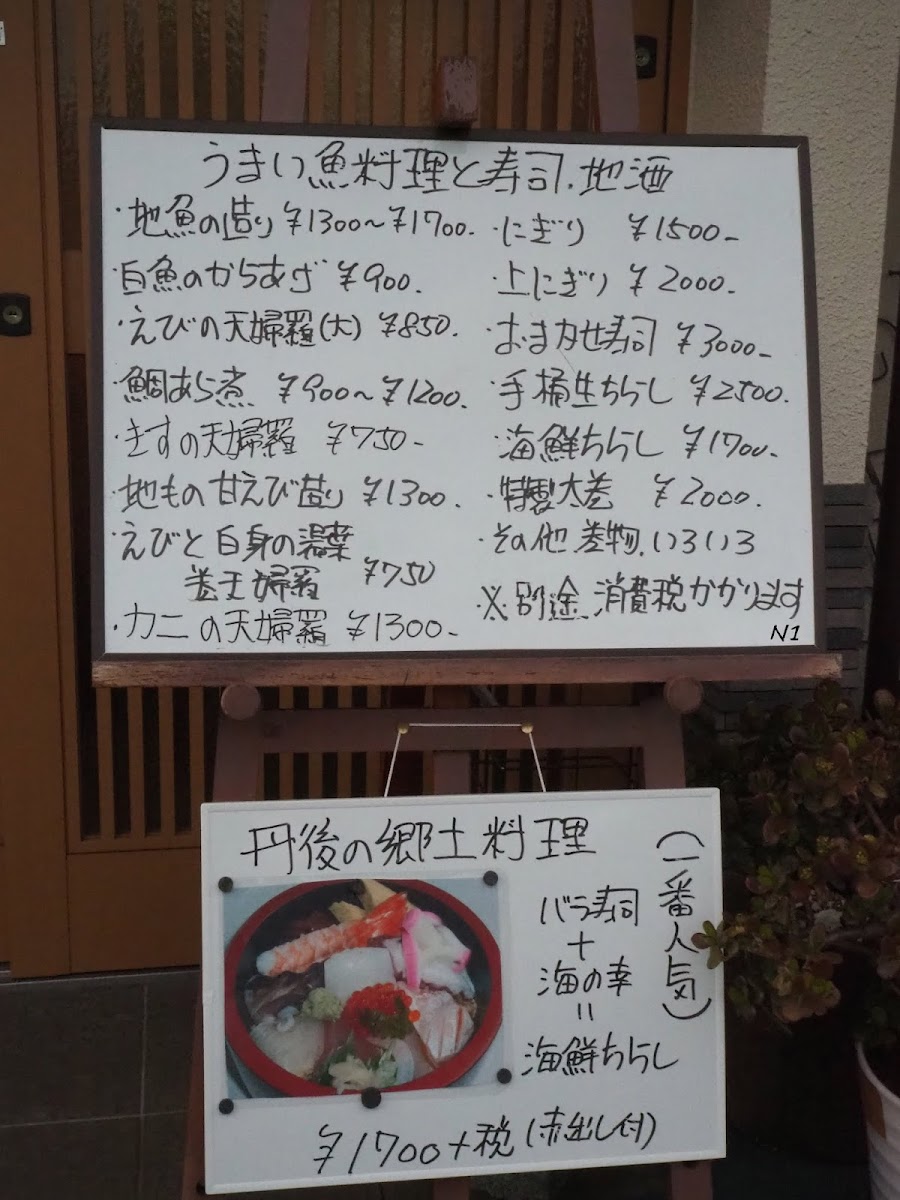 うまい魚料理と寿司.地酒
・地魚の造り ¥1300〜¥1700.
白魚のからあげ ¥900.
・えびの天婦羅(大) ¥850.
・鯛あら煮 ¥900〜¥1200.
・きすの天婦羅 ¥750-
・地もの甘えび造り ¥1300.
・えびと白身の湯葉
¥750
・カニの天婦羅 ¥1300-
・にぎり ¥1500-
・上にぎり ¥2000-
・おまかせ寿司 ¥3000-
・手桶生ちらし ¥2500.
・海鮮ちらし ¥1700-
・特製大巻 ¥2000.
・その他 巻物.いろいろ
・※.別途 消費税かかります
N1
丹後の郷土料理
(一番人気)
バラ寿司
+
海の幸
=
海鮮ちらし
¥1700+税(赤出し付)